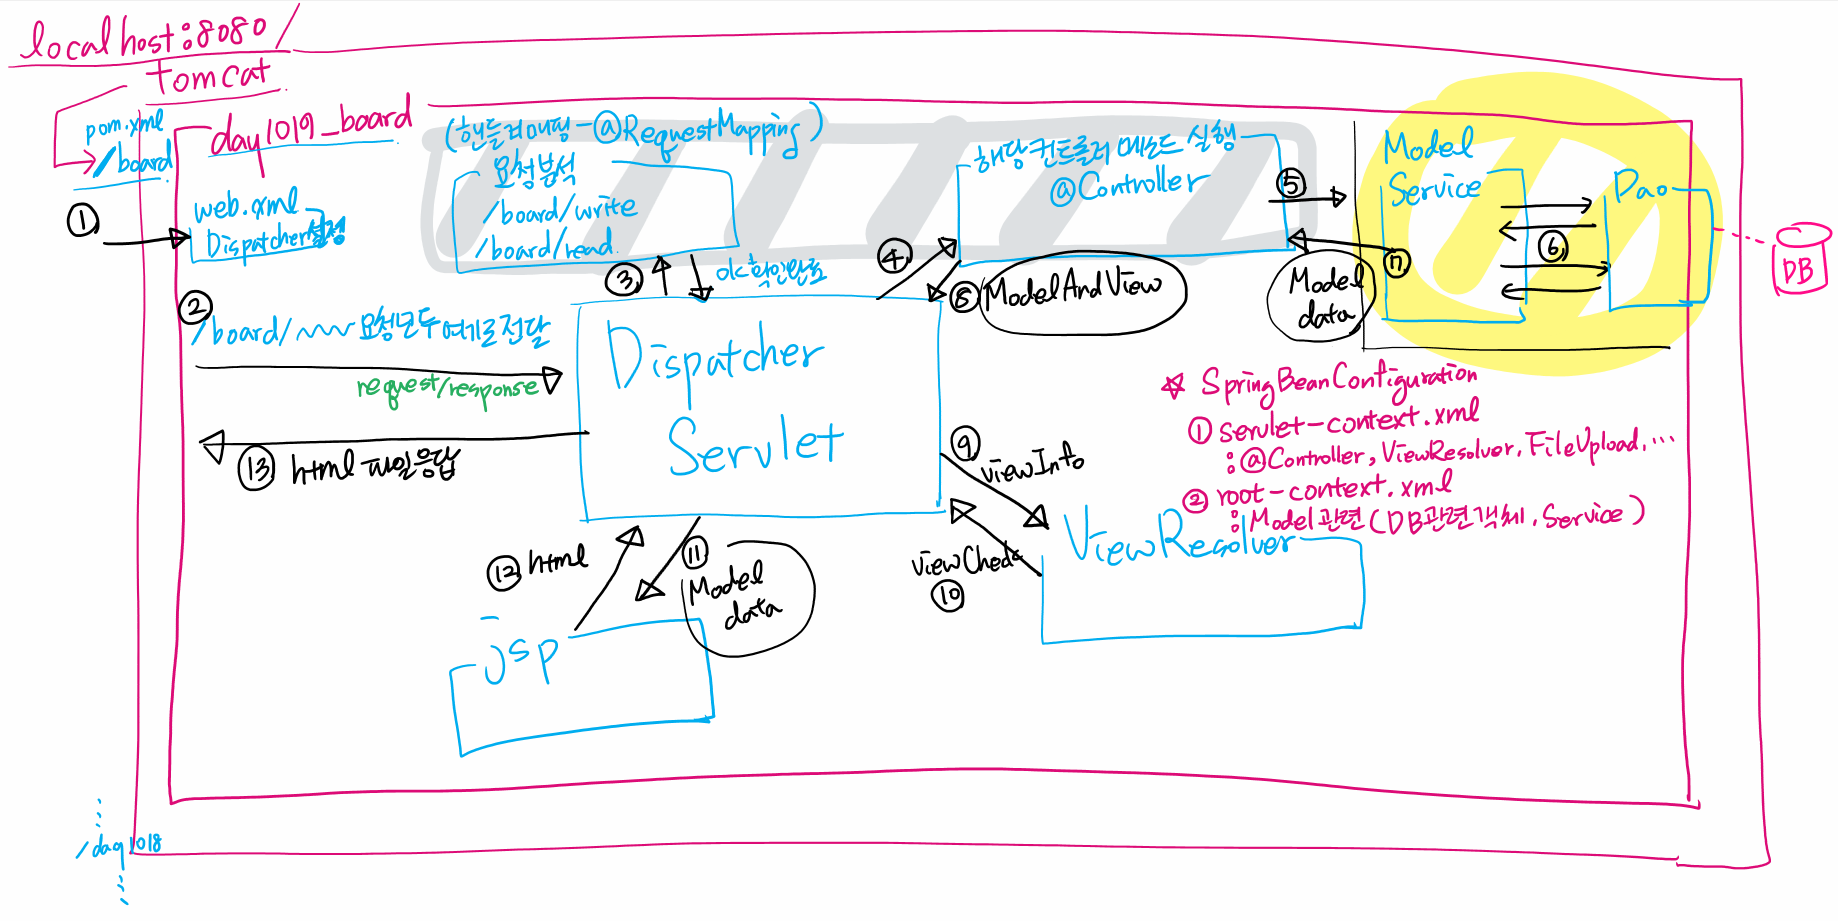 localhost:8080/
tomcat
pom.xml
/board
day1019_board
①
web.xml
Dispatcher설정
(핸들러매핑-@RequestMapping)
요청분석
/board/write
/board/read
③
ok확인완료
해당컨트롤러 메소드 실행
@Controller
④
⑤
⑧ ModelAndView
⑦
Model
data
Model
Service
Dao
⑥
DB
②
/board/~~~ 요청모두 여기로전달
request/response
Dispatcher
Servlet
⑬ html파일응답
⑨
viewInfo
viewCheck
⑩
ViewResolver
⑫ html
⑪
Model
data
jsp
☆ SpringBeanConfiguration
① servlet-context.xml
: @Controller, ViewResolver, FileUpload, ...
② root-context.xml
: Model관련(DB관련객체, Service)
/day1018